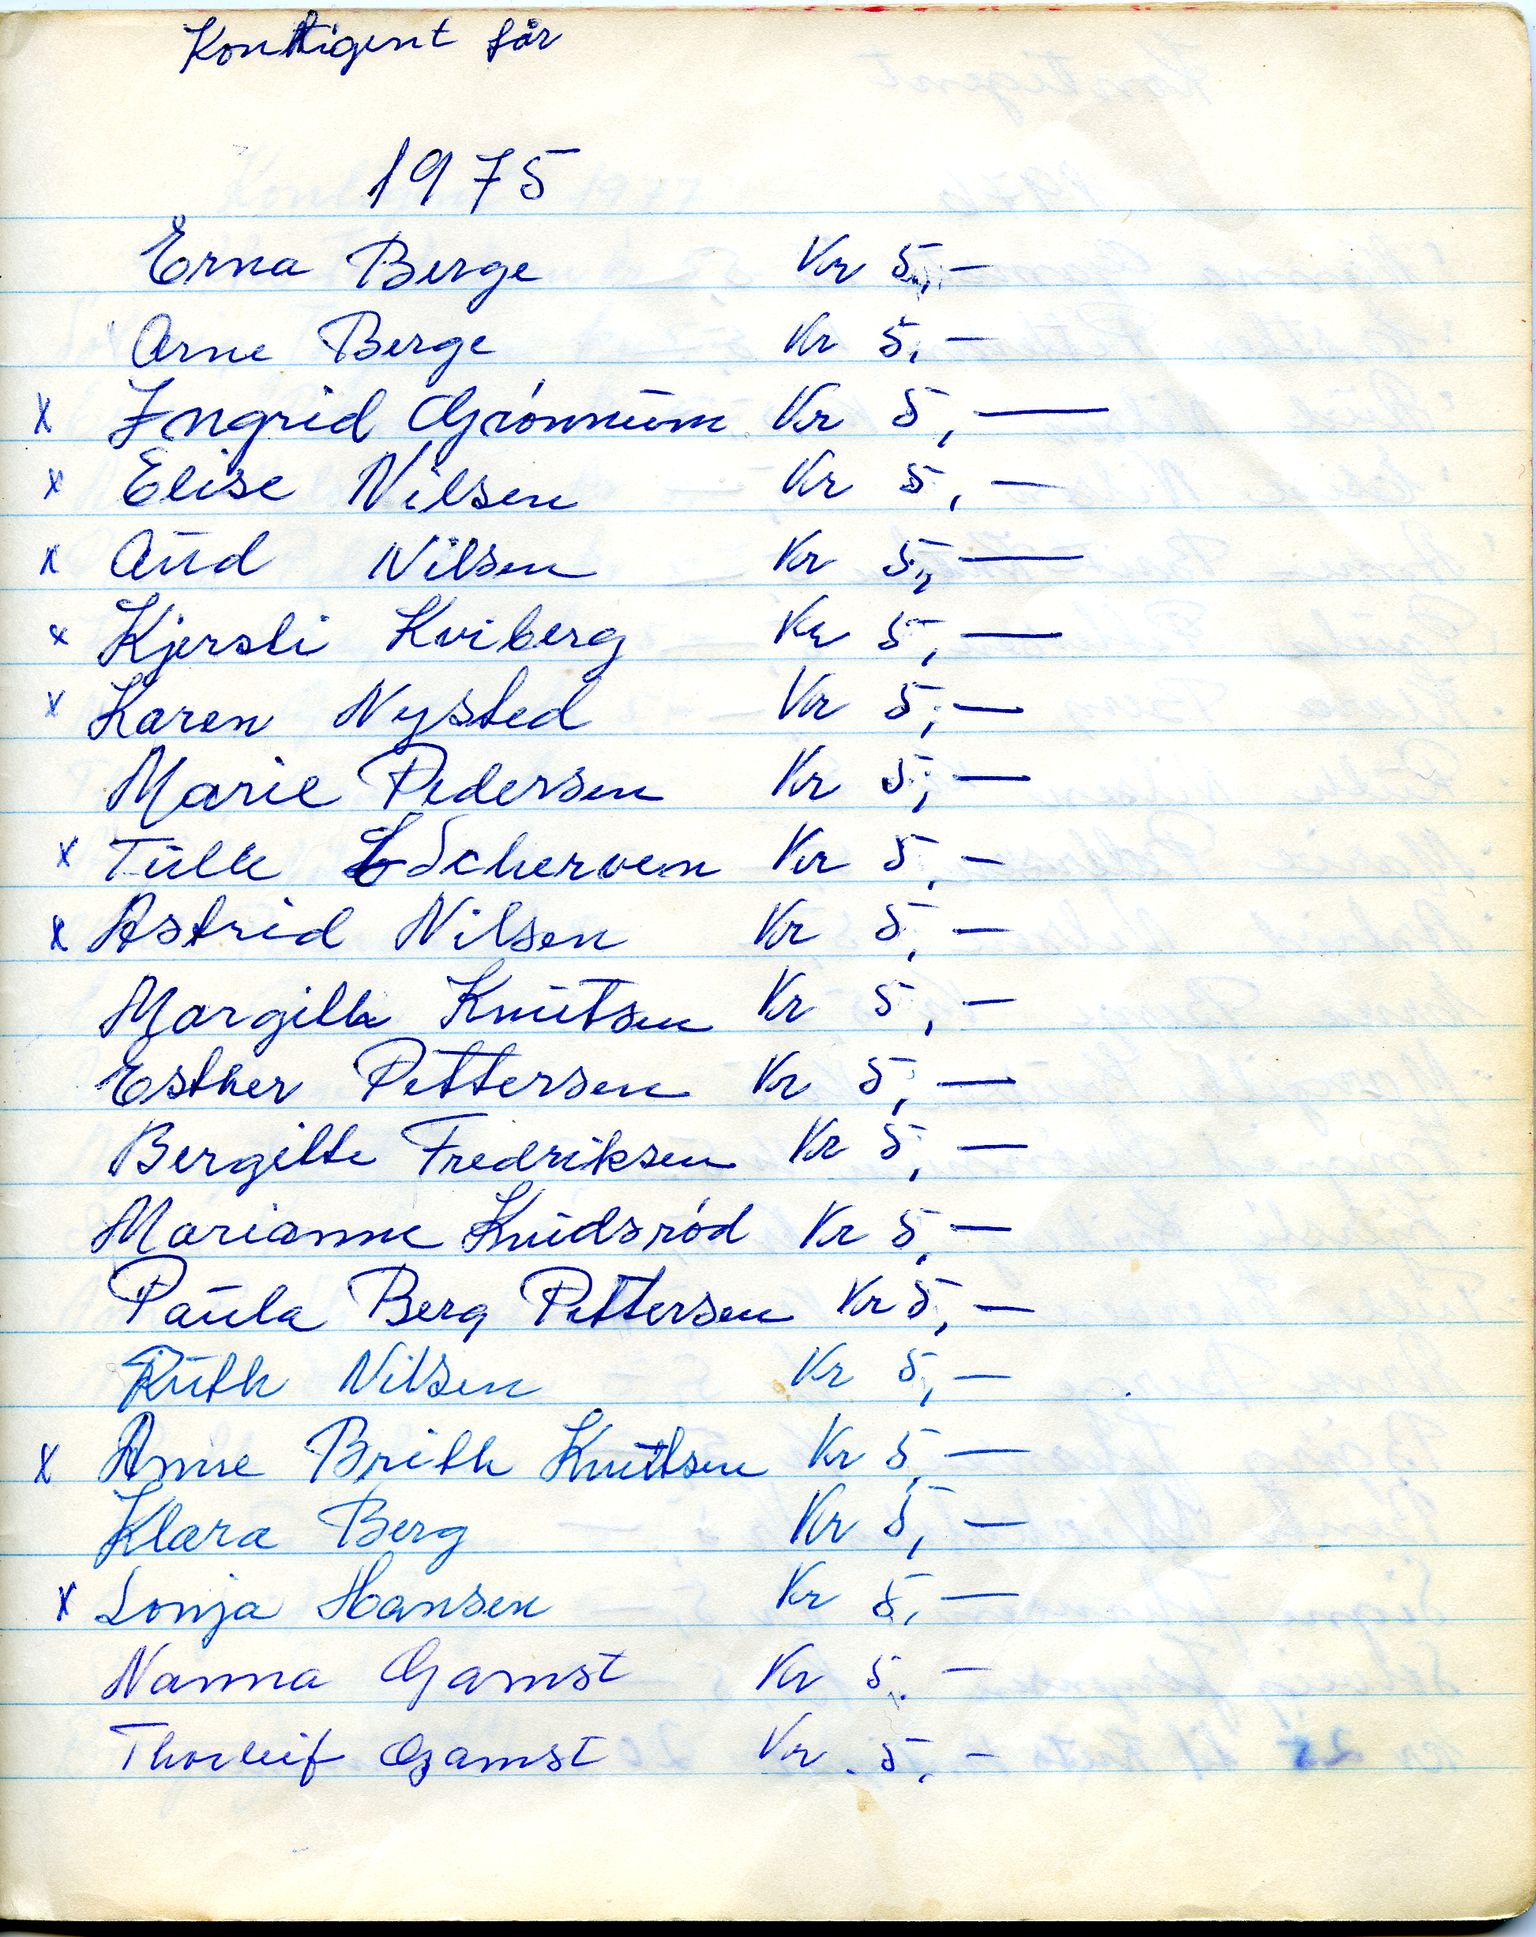 Kontigent för
1975
Erna Berge Kr 5,—
Arne Berge Kr 5,—
x Ingrid Grónnum Kr 5,—
x Elise Nilsen Kr 5,—
x Aud Nilsen Kr 5,—
x Kjersti Kviberg Kr 5,—
x Karen Nysted Kr 5,—
Marie Pedersen Kr 5,—
x Tulla Scherven Kr 5,—
x Astrid Nilsen Kr 5,—
Margith Knutsen Kr 5,—
Esther Pettersen Kr 5,—
Bergitte Fredriksen Kr 5,—
Marianne Knudsród Kr 5,—
Paula Berg Pettersen Kr 5,—
Ruth Nilsen Kr 5,—
x Anne Brith Knutsen Kr 5,—
Klara Berg Kr 5,—
x Sonja Hansen Kr 5,—
Nanna Gamst Kr 5.—
Thorleif Gamst Kr. 5,—